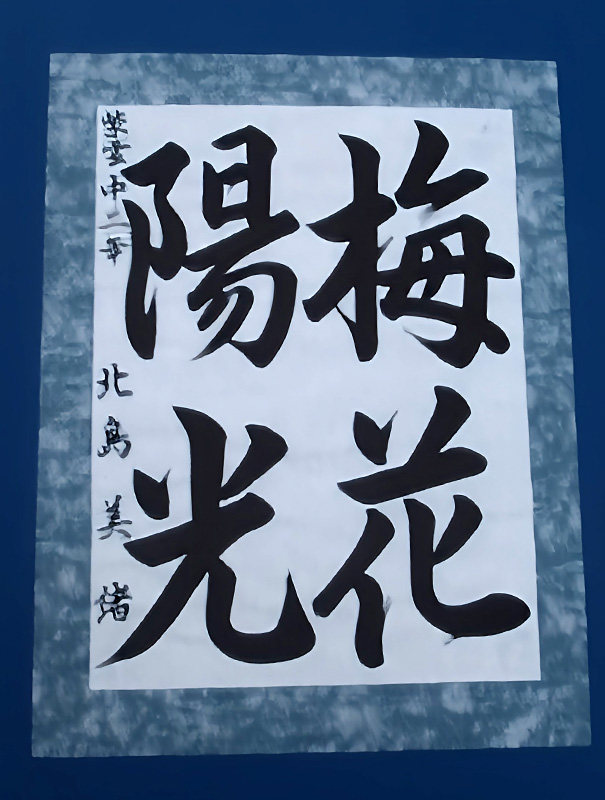 梅花
陽光
紫雲中二年 北島美緒